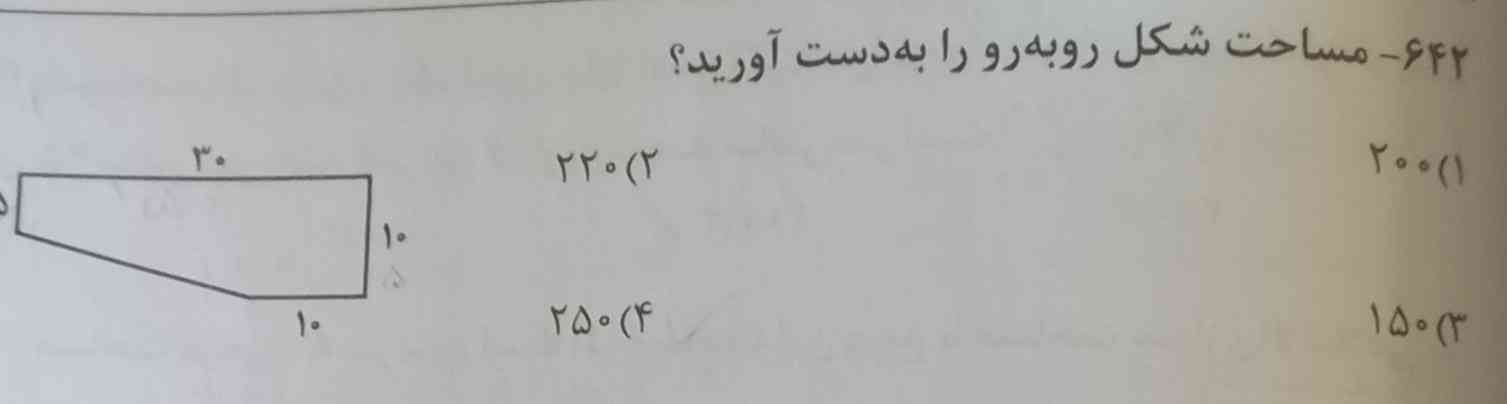 ۶۴۲- مساحت شکل روبه‌رو را به‌دست آورید؟
۱) ۲۰۰
۲) ۲۲۰
۳) ۱۵۰
۴) ۲۵۰
۳۰
۵
۱۰
۱۰